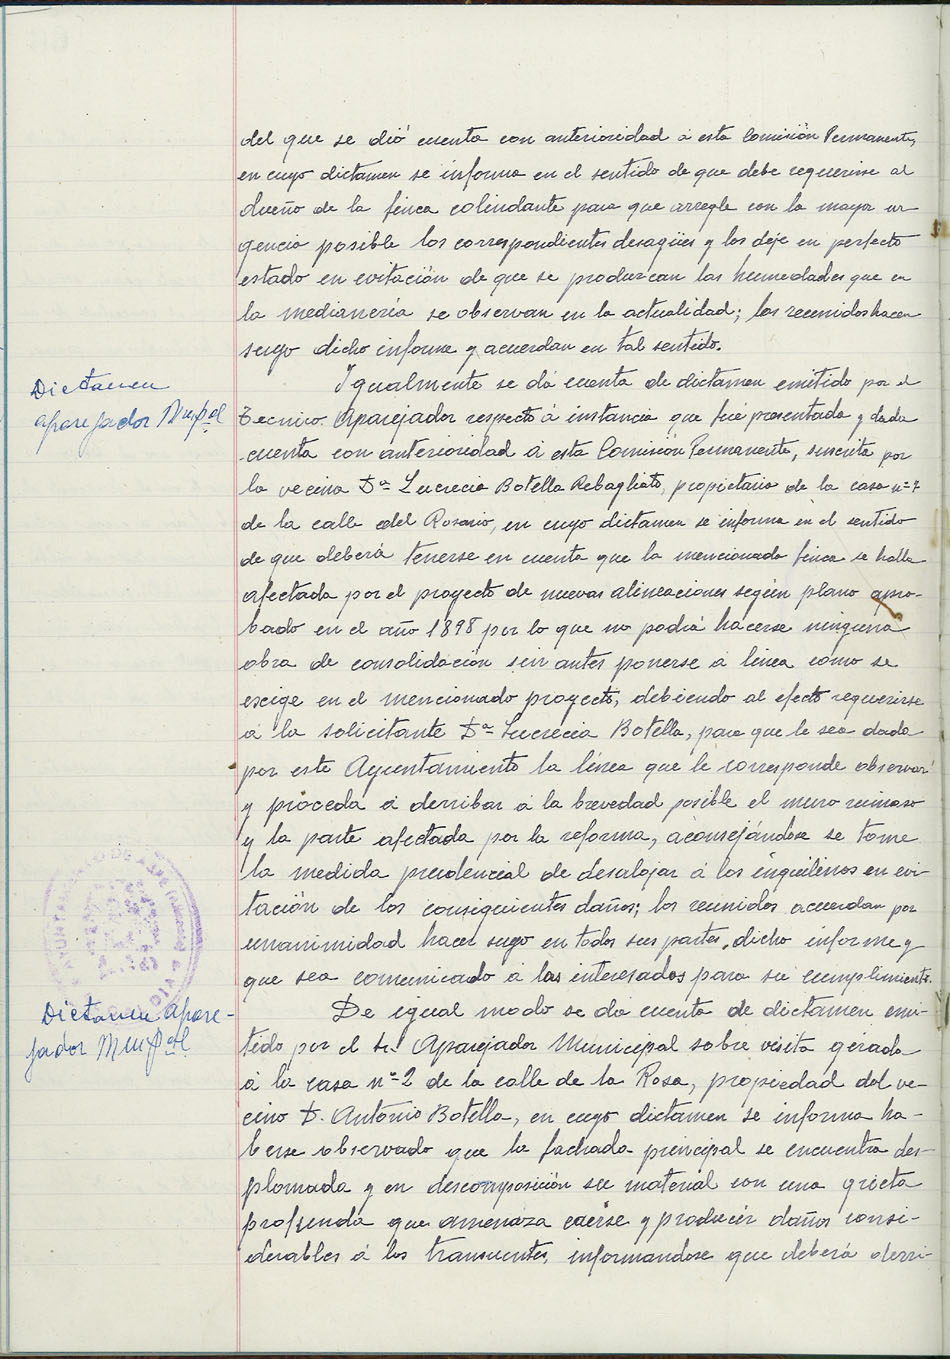 del que se dió cuenta con anterioridad á esta Comisión Permanente,
en cuyo dictamen se informa en el sentido de que debe requerirse al
dueño de la finca colindante para que arregle con la mayor ur
gencia posible los correspondientes desagües y los deje en perfecto
estado en evitación de que se produzcan las humedades que en
la medianería se observan en la actualidad; los reunidos hacen
suyo dicho informe y acuerdan en tal sentido.
Dictamen
aparejador Mupal
Igualmente se dá cuenta de dictamen emitido por el
Tecnico Aparejador respecto á instancia que fué presentada y dada
cuenta con anterioridad á esta Comisión Permanente, suscrita por
la vecina Dª Lucrecia Botella Rebagliato, propietaria de la casa nº 7
de la calle del Rosario, en cuyo dictamen se informa en el sentido
de que deberá tenerse en cuenta que la mencionada finca se halla
afectada por el proyecto de nuevas alineaciones según plano apro-
bado en el año 1898 por lo que no podrá hacerse ninguna
obra de consolidación sin antes ponerse a línea como se
exige en el mencionado proyecto, debiendo al efecto requerirse
á la solicitante Dª Lucrecia Botella, para que le sea dada
por este Ayuntamiento la línea que le corresponde observar
y proceda á derribar á la brevedad posible el muro ruinoso
y la parte afectada por la reforma, aconsejándose se tome
la medida prudencial de desalojar á los inquilinos en evi-
tación de los consiguientes daños; los reunidos acuerdan por
unanimidad hacer suyo en todas sus partes, dicho informe y
que sea comunicado á los interesados para su cumplimiento.
AYUNTAMIENTO DE
Dictamen apare-
jador Mupal
De igual modo se da cuenta de dictamen emi-
tido por el Sr. Aparejador Municipal sobre visita girada
á la casa nº 2 de la calle de la Rosa, propiedad del ve-
cino D. Antonio Botella, en cuyo dictamen se informa ha-
berse observado que la fachada principal se encuentra des-
plomada y en descomposición su material con una grieta
profunda que amenaza caerse y producir daños consi-
derables á los transeuntes, informandose que deberá derri-